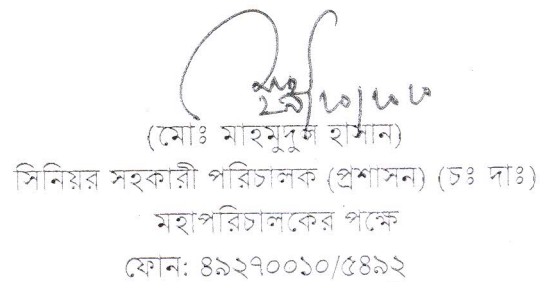 (মোঃ মাহমুদুল হাসান)
সিনিয়র সহকারী পরিচালক (প্রশাসন) (চঃ দাঃ)
মহাপরিচালকের পক্ষে
ফোন: ৪৯২৭০০১০/৫৪৯২